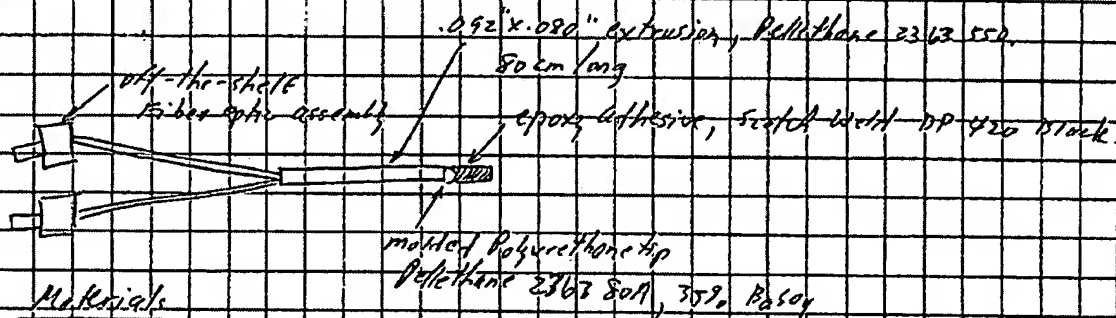 .092"x.080" extrusion, Pellethane 2363 55D.
80 cm long
off-the-shelf
Fiber optic assembly
epoxy adhesive, Scotch Weld DP 420 Black.
molded Polyurethane tip
Pellethane 2363 80A, 35% BaSO4
Materials